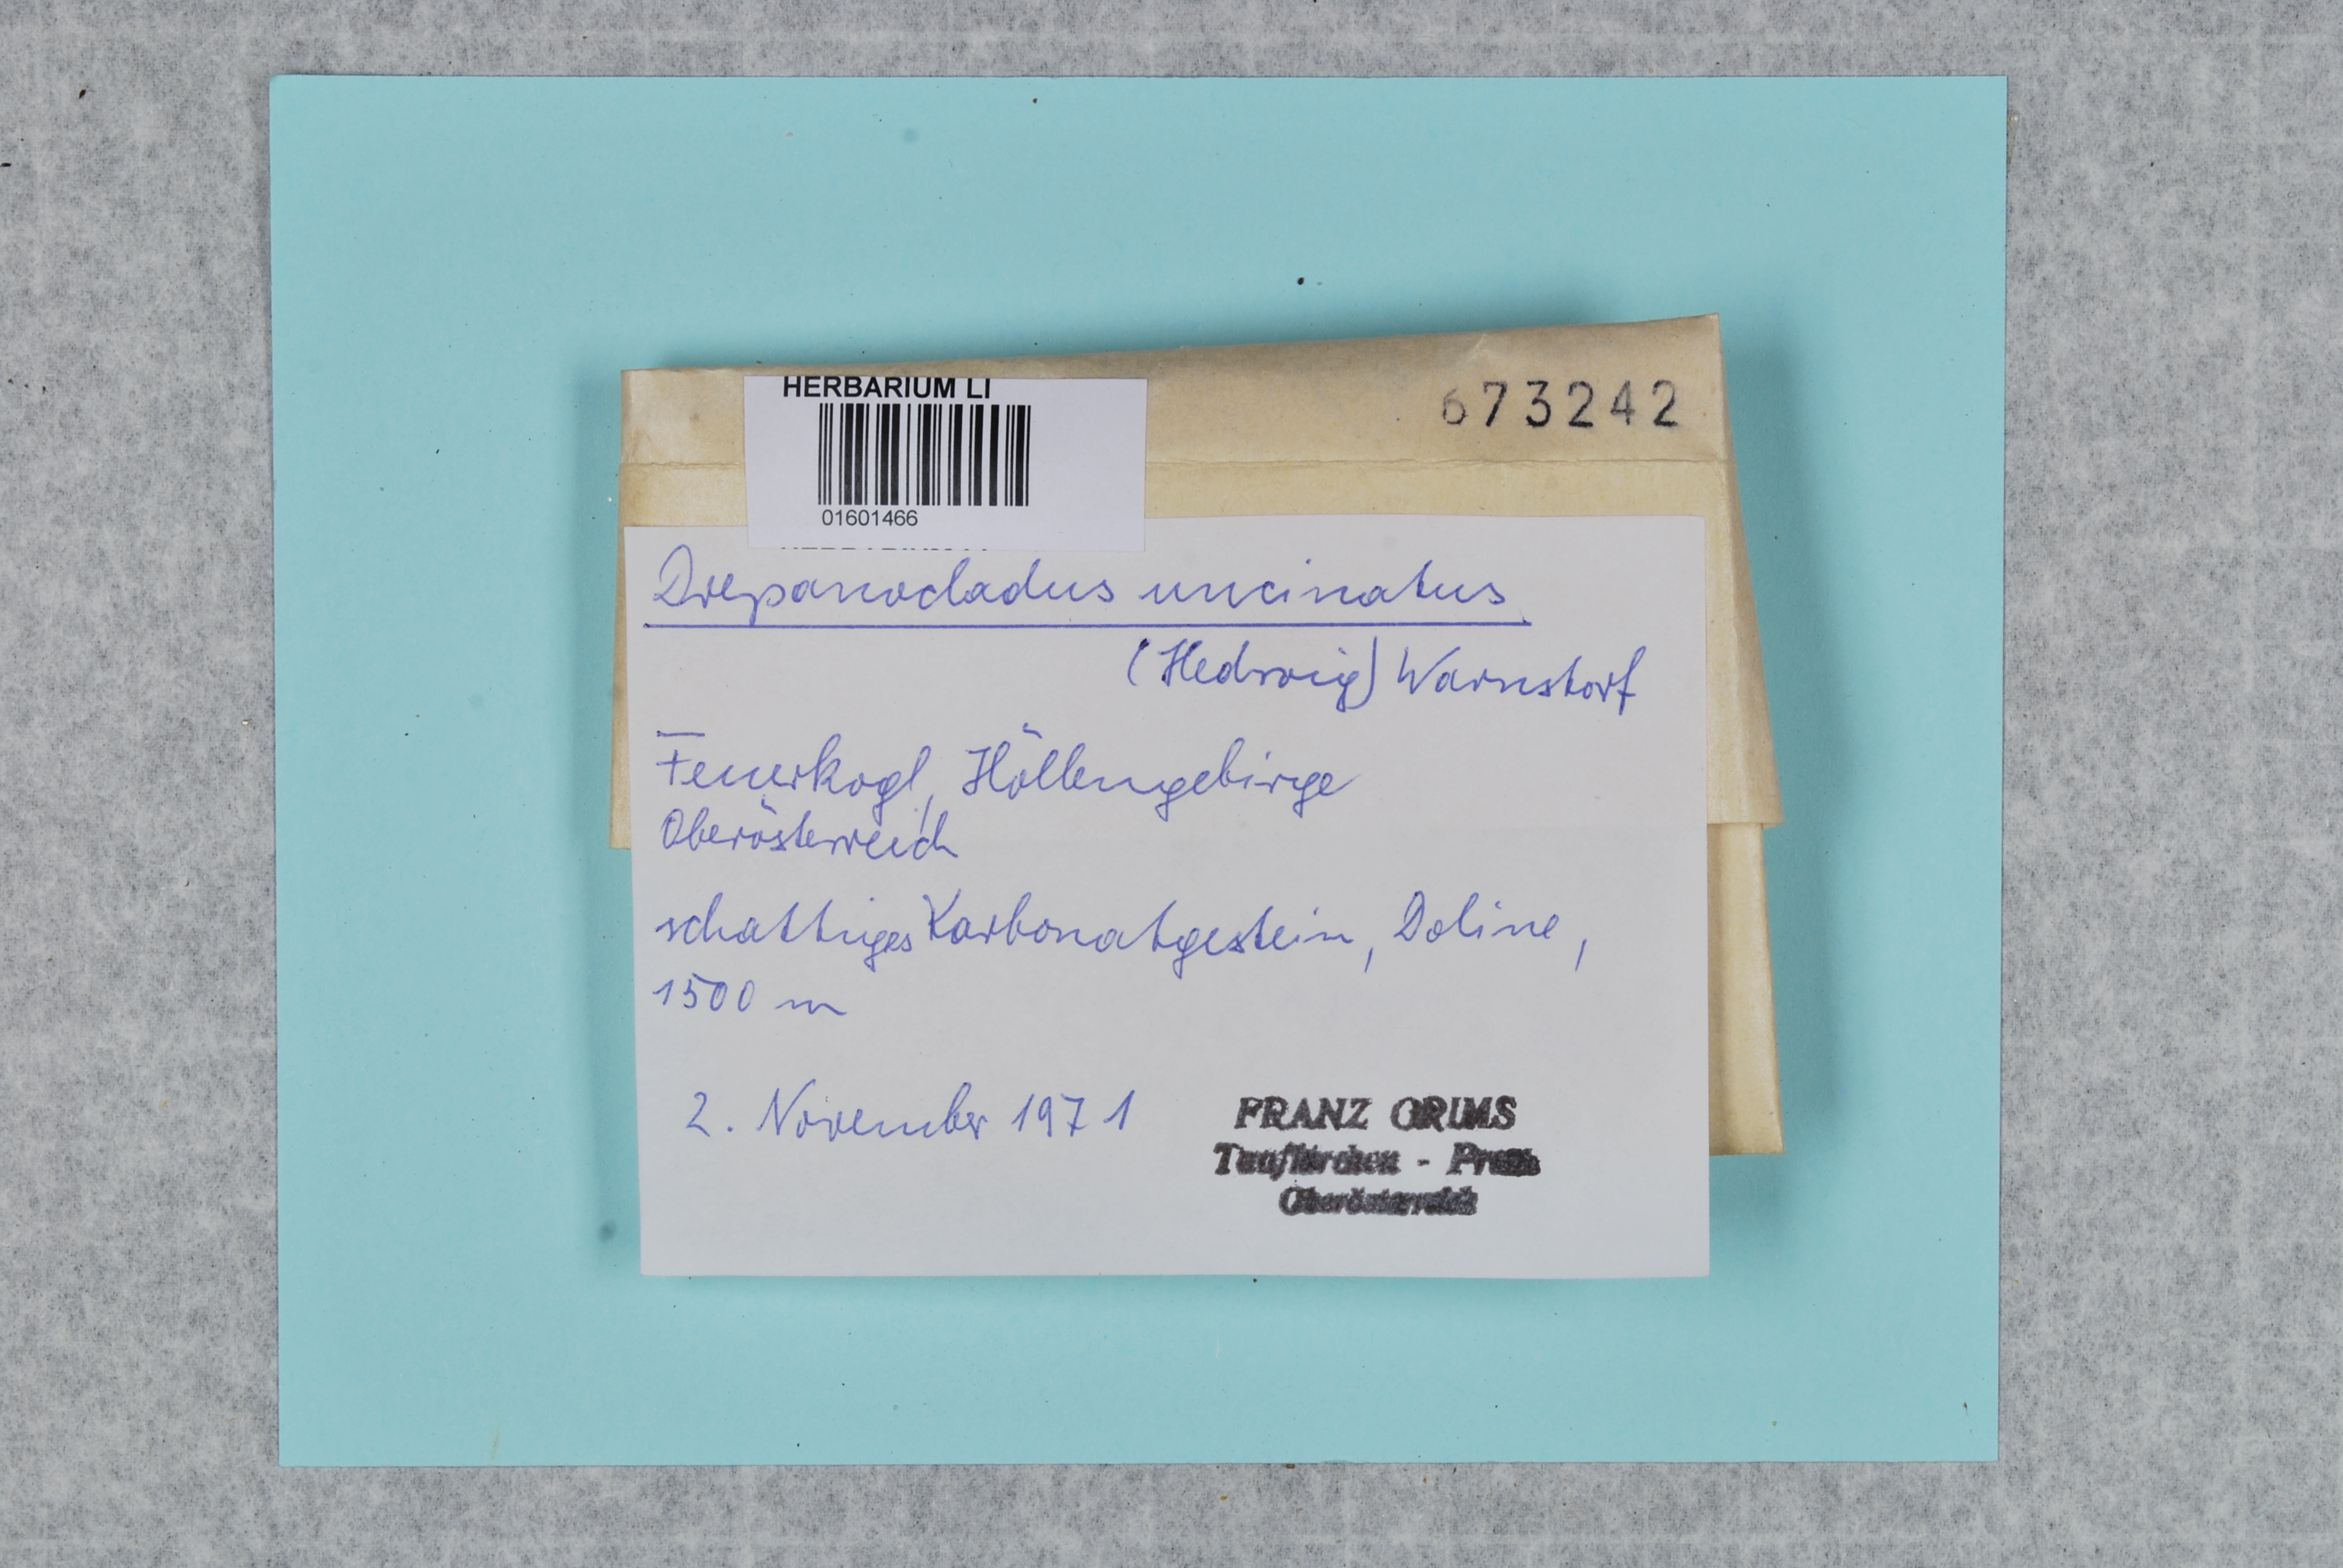 HERBARIUM LI
673242
01601466
Drepanocladus uncinatus
(Hedwig) Warnstorf
Feuerkogl, Höllengebirge
Oberösterreich
schattiges Karbonatgestein, Doline,
1500 m
2. November 1971
FRANZ GRIMS
Taufkirchen - Pram
Oberösterreich